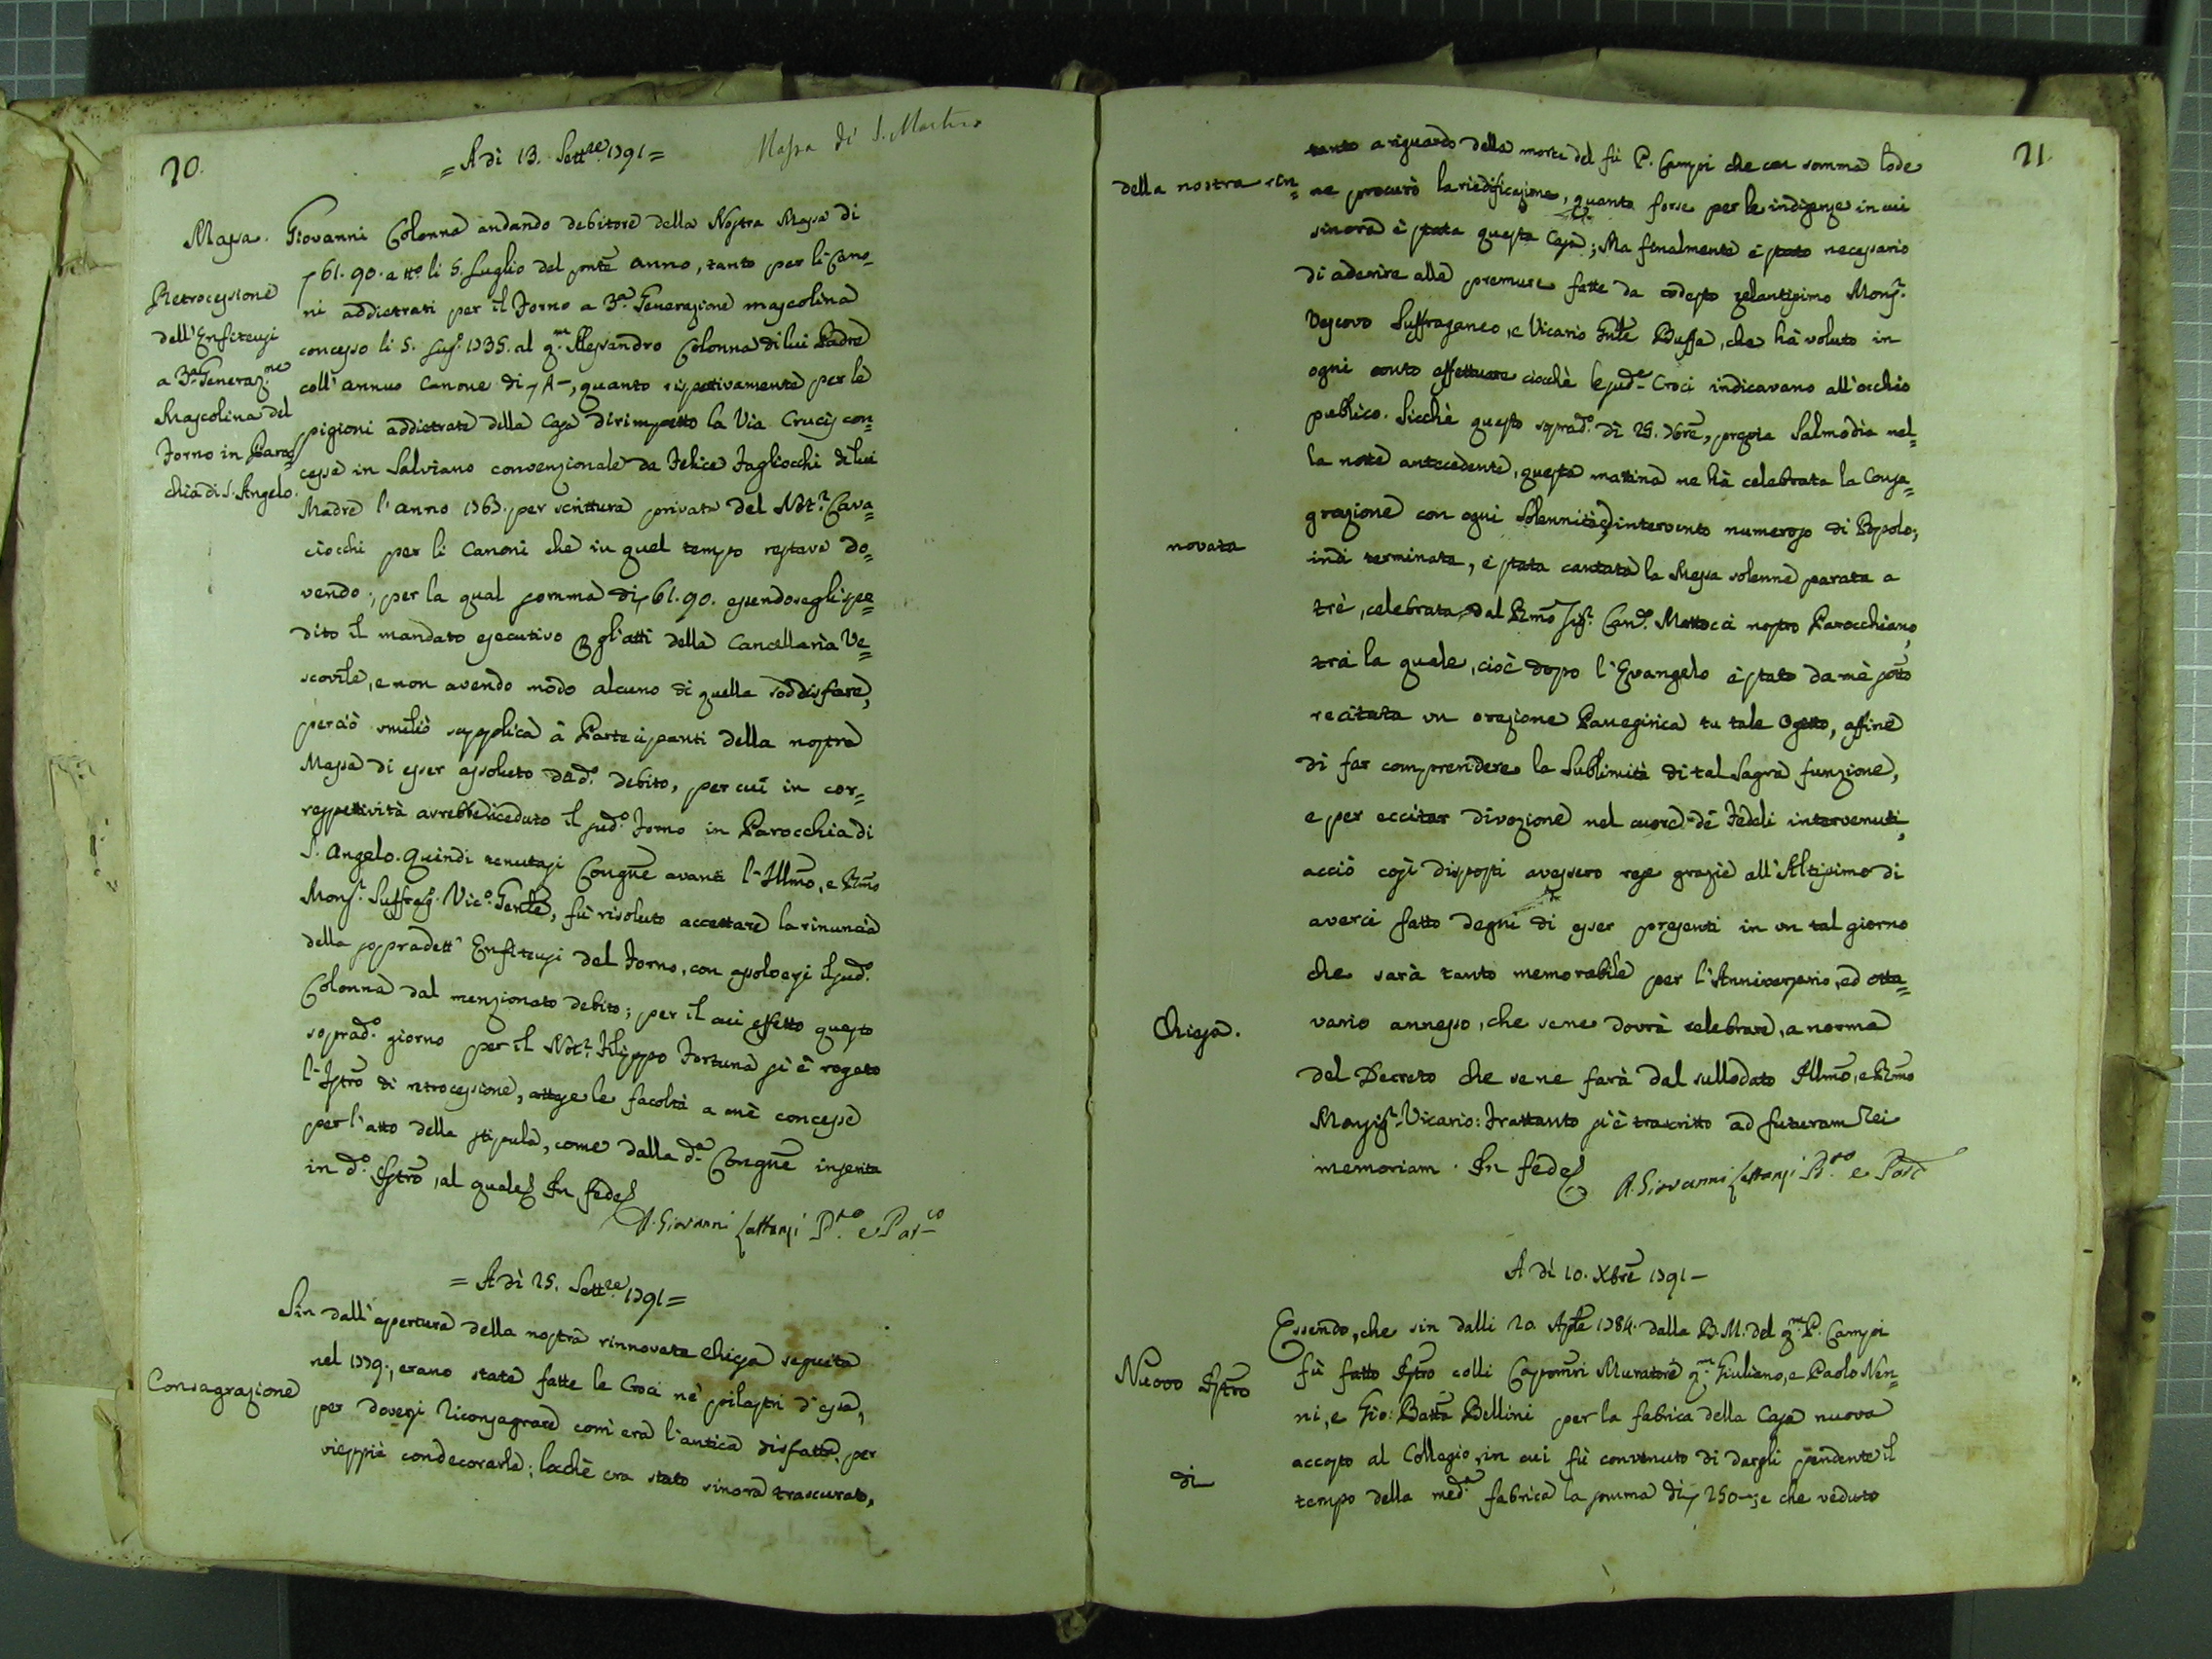 20.
= A dì 13. Sett.re 1791 =
Massa di S. Martino
Massa.
Retrocessione
dell'Enfiteusi
a 3.a Generaz.ne
Mascolina del
Forno in Paroc=
chia di S. Angelo.
Giovanni Colonna andando debitore della Nostra Massa di
61.90. a tto li 5. Luglio del pnte anno, tanto per li Cano=
ni addietrati per il Forno a 3.a Generazione mascolina
concesso li 5. 1735. al q.m Alessandro Colonna di lui Padre
coll'annuo Canone di , quanto rispettivamente per le
pigioni addietrate della Casa dirimpetto la Via Crucis con=
cesse in Salviano convenzionale da Felice Fagliocchi di lui
Madre l'anno 1763. per scrittura privata del Not.r Cava=
ciocchi per li Canoni che in quel tempo restava do=
vendo; per la qual somma di 61.90. essendosegli spe=
dito il mandato esecutivo gli atti della Cancellaria Ve=
scovile, e non avendo modo alcuno di quella soddisfare,
perciò umiliò supplica à Partecipanti della nostra
Massa di esser assoluto da d.o debito, per cui in cor=
respettività avrebbe riceduto il sud.o Forno in Parocchia di
S. Angelo. Quindi tenutasi Congñe avanti l'Illmo, e Rmo
Mons.r Suffrag. Vic.o Genle, fù risoluto accettare la rinuncia
della sopradett' Enfiteusi del Forno, con assolversi il sud.o
Colonna dal menzionato debito; per il cui effetto questo
soprad.o giorno per il Not.r Filippo Fortuna si è rogato
l'Istro di retrocessione, attese le facoltà a mè concesse
per l'atto della stipula, come dalla d.a Congñe inserita
in d.o Istro, al quale In fede
A. Giovanni Lattanzi P.re e Par.co
= A dì 25. Sett.re 1791 =
Consagrazione
Sin dall'apertura della nostra rinnovata Chiesa seguita
nel 1779., erano state fatte le Croci nè pilastri d'essa,
per doversi Riconsagrare com'era l'antica disfatta, per
vieppiù condecorarla; locchè era stato sinora trascurato,
21.
della nostra rin=
novata
Chiesa.
tanto a riguardo della morte del fù P. Campi che con somma lode
ne procurò la riedificazione, quanto forse per le indigenze in cui
sinora è stata questa Casa; Ma finalmente è stato necessario
di aderire alle premure fatte da codesto zelantissimo Mons.r
Vescovo Suffraganeo, e Vicario Gnle Buffa, che hà voluto in
ogni conto effettuare ciocchè le sud.e Croci indicavano all'occhio
publico. Sicchè questo soprad.o dì 25. 7bre, previa Salmodia nel=
la notte antecedente, questa mattina ne hà celebrata la Consa=
grazione con ogni solennità, e intervento numeroso di Popolo;
indi terminata, è stata cantata la Messa solenne parata a
trè, celebrata dal Rmo Sig.r Can.o Mattocci nostro Parocchiano,
trà la quale, cioè dopo l'Evangelo è stato da mè sotto
recitata un orazione Panegirica su tale Ogetto, affine
di far comprendere la Sublimità di tal Sagra funzione,
e per eccitar divozione nel cuore de' Fedeli intervenuti,
acciò così disposti avessero rese grazie all'Altissimo di
averci fatto degni di esser presenti in un tal giorno
che sarà tanto memorabile per l'Anniversario, ed otta=
vario annesso, che se ne dovrà celebrare, a norma
del Decreto che se ne farà dal sullodato Illmo, e Rmo
Monsig.r Vicario: Frattanto si è trascritto ad futuram Rei
memoriam. In fede
A. Giovanni Lattanzi P.re e Par.co
A dì 10. Xbre 1791 -
Nuovo Istro
di
Essendo, che sin dalli 20. Aple 1784. dalla B. M. del q.m P. Campi
fù fatto Istro colli Capomri Muratore q.m Giuliano, e Paolo Nen=
ni, e Gio: Batta Bellini per la fabrica della Casa nuova
accosto al Collegio, in cui fù convenuto di dargli pendente il
tempo della med.a fabrica la somma di 250-; e che veduto